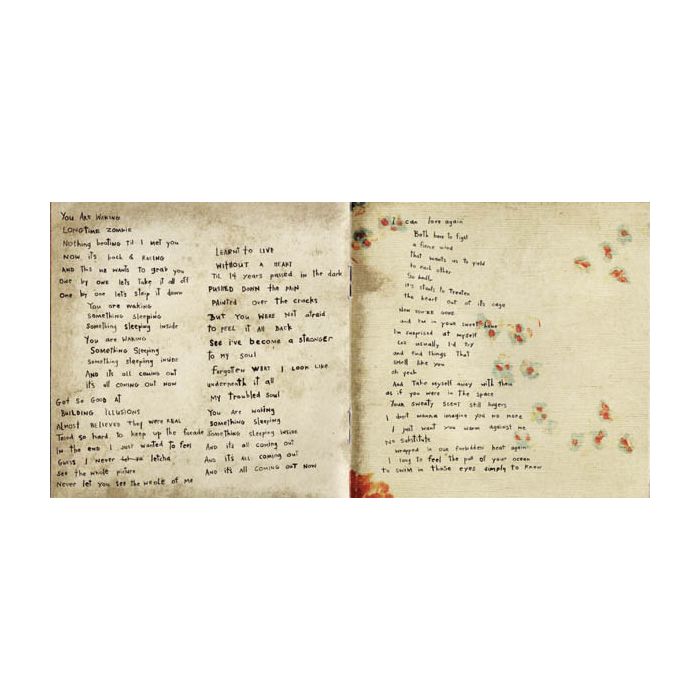 You Are Waking
LONGTIME ZOMBIE
Nothing beating Til I met you
NOW it's back & RACING
AND this ME WANTS to grab you
One by one lets Take it all off
One by one let's strip it down
You are waking
Something sleeping
Something sleeping inside
You are waking
Something Sleeping
Something sleeping inside
And it's all coming out
It's all coming out now
Got so GOOD At
BUILDING ILLUSIONS
Almost Believed They were REAL
Tried so hard to keep up the facade
In the end I just wanted to feel
Guess I never letcha
See the whole picture
Never let you see the whole of me
LEARNT to LIVE
WITHOUT A HEART
Til 14 years passed in the dark
PUSHED DOWN the PAIN
PAINTED over the cracks
BUT YOU WERE NOT afraid
to peel it all BACK
SEE I've become a STRANGER
to my soul
Forgotten WHAT I LOOK LIKE
underneath it all
My troubled Soul
You Are waking
Something sleeping
Something sleeping inside
And it's all coming out
And it's ALL coming out
And it's ALL COMING OUT NOW
I can love again
Both have to fight
a fierce wind
That wants us to yield
to each other
So badly
It's starts to Threaten
the heart out of its cage
Now you're gone
and I'm in your sweet home
I'm surprised at myself
Cos usually I'd try
and find things That
smell like you
oh yeah
And Take myself away with them
as if you were in the space
Your sweaty scent still lingers
I don't wanna imagine you no more
I just want you warm against me
No Substitute
Wrapped in our forbidden heat again
I long to feel the pull of your ocean
to SWIM in those eyes simply to know